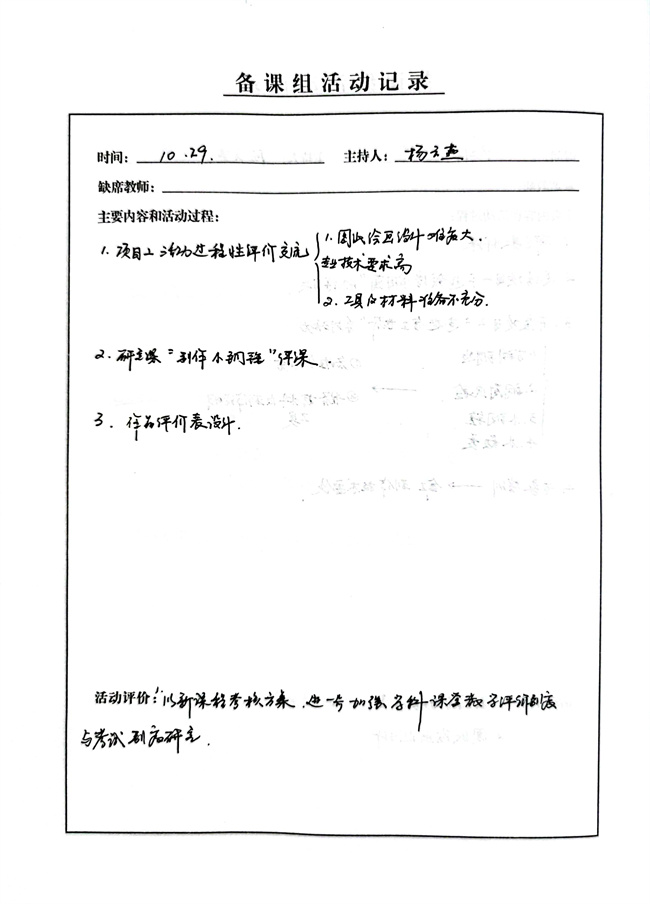 备课组活动记录
时间： 10.29. 主持人： 杨
缺席教师：
主要内容和活动过程：
1. 项目二 活动过程性评价交流 1. 因此绘画设计难度大.
技术要求高
2. 工具及材料准备不充分.
2. 研究课"制作小钢锤"评课.
3. 作品评价表设计.
活动评价：以新课程考核方案, 进一步加强学科课堂教学评价制度
与考试制度研究.